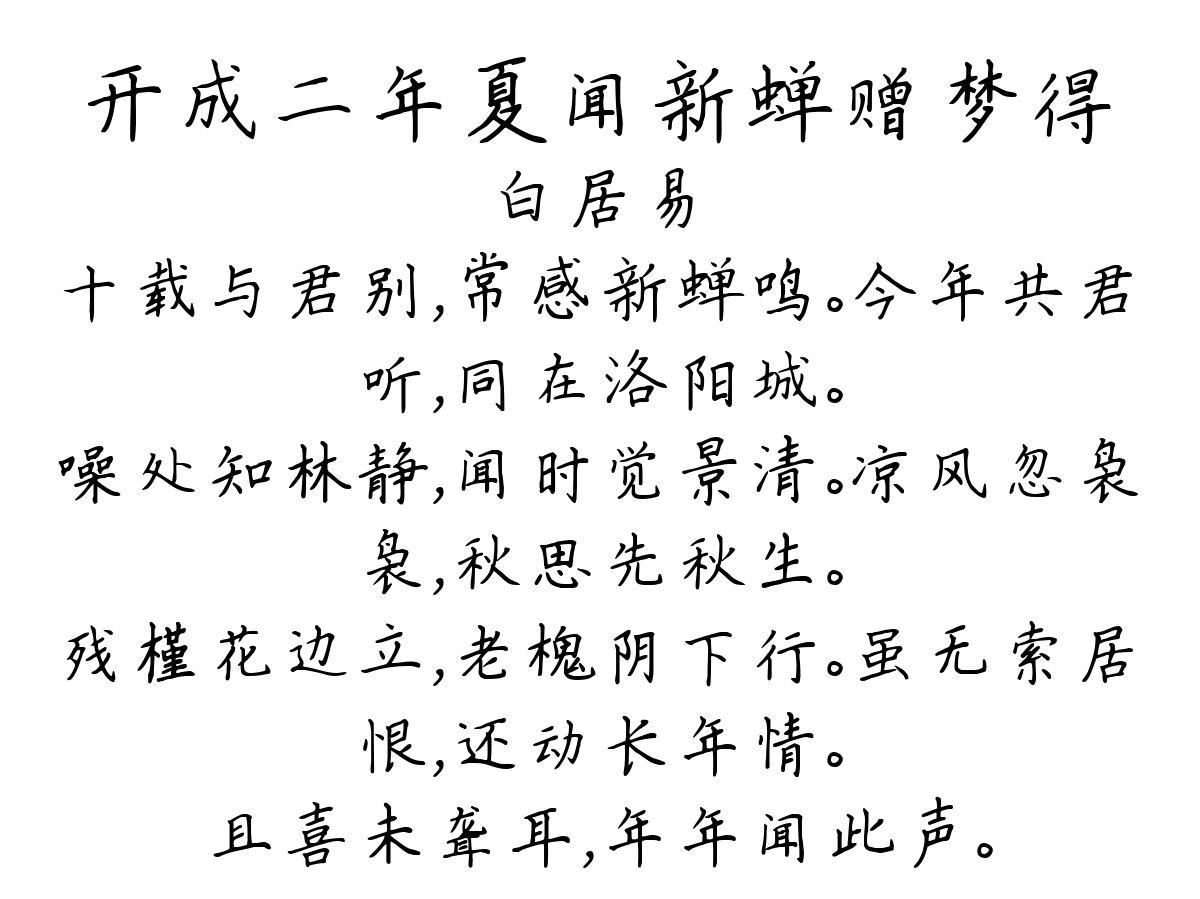 开成二年夏闻新蝉赠梦得
白居易
十载与君别,常感新蝉鸣。今年共君
听,同在洛阳城。
噪处知林静,闻时觉景清。凉风忽袅
袅,秋思先秋生。
残槿花边立,老槐阴下行。虽无索居
恨,还动长年情。
且喜未聋耳,年年闻此声。